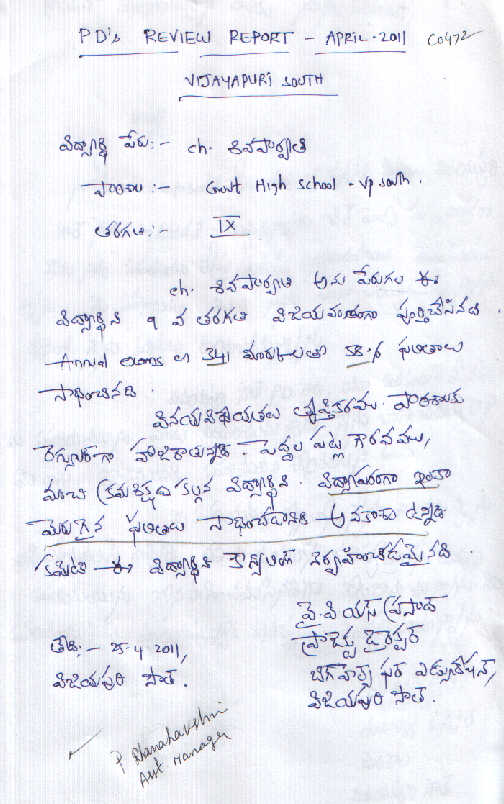 PD's REVIEW REPORT - APRIL-2011 CO472
VIJAYAPURI SOUTH
విద్యార్థి పేరు:- ch. శివపార్వతి
పాఠశాల :- Govt High school - vp.south.
తరగతి:- IX
ch. శివపార్వతి అను పేరుగల ఈ
విద్యార్థిని 9 వ తరగతి విజయవంతంగా పూర్తిచేసినది.
Annual exams లో 341 మార్కులతో 58% ఫలితాలు
సాధించినది.
వినయవిధేయతలు తృప్తికరము. పాఠశాలకు
రెగ్యులర్‌గా హాజరౌతున్నది. పెద్దల పట్ల గౌరవము,
మంచి క్రమశిక్షణ కల్గిన విద్యార్థిని. విద్యాపరంగా ఇంకా
మెరుగైన ఫలితాలు సాధించడానికి అవకాశం ఉన్నది
కనుక ఈ విద్యార్థినికి కౌన్సిలింగ్ నిర్వహించడమైనది.
వై.వి.యస్ ప్రసాద్
ప్రాజెక్టు డైరెక్టర్
తేది:- 25-4-2011,
విజయపురి సౌత్.
బిగ్ హెల్ప్ ఫర్ ఎడ్యుకేషన్,
విజయపురి సౌత్.
P Dhanalakshmi
Asst Manager